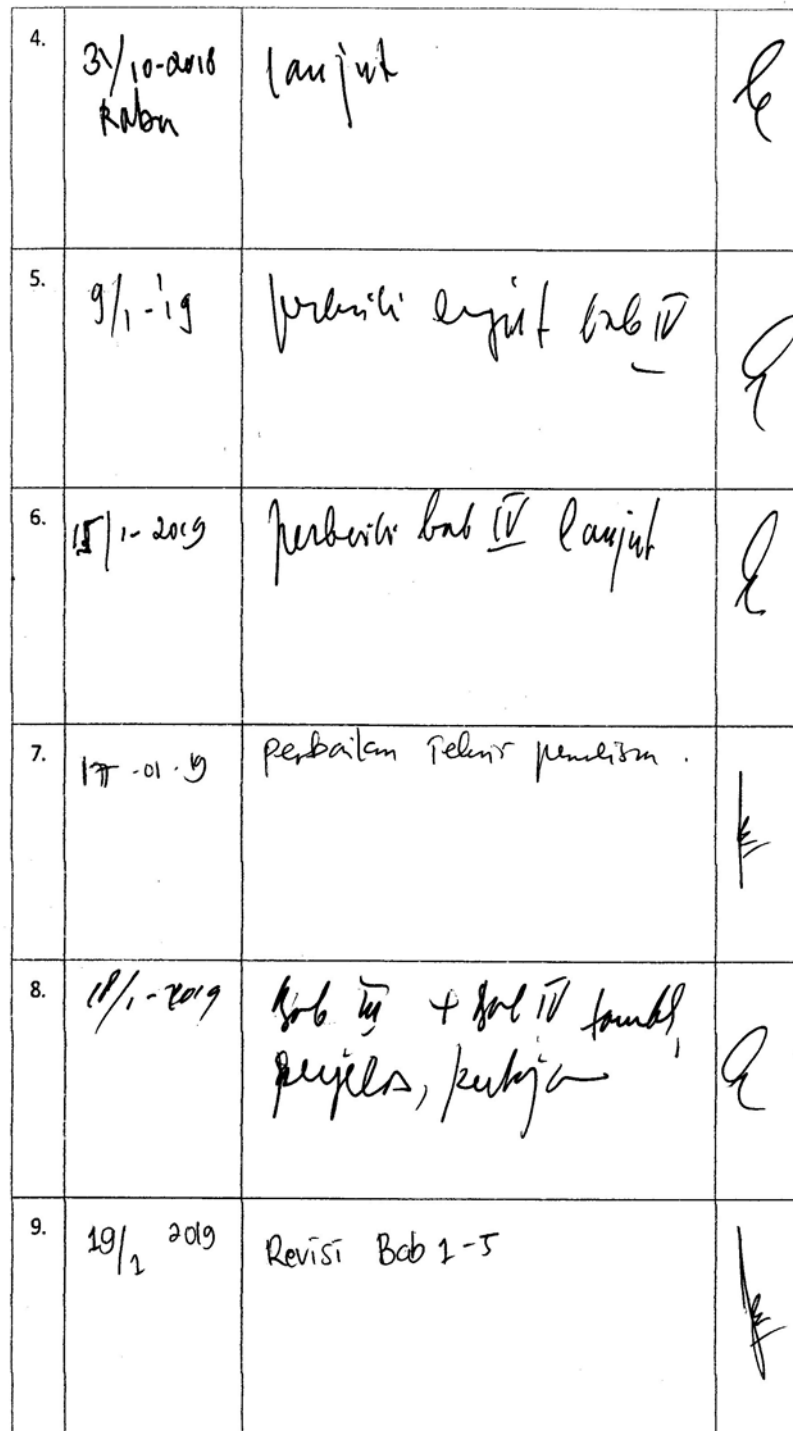 4. 31/10-2018 lanjut
Rabu
5. 9/1-'19 perbaiki lanjut bab IV
6. 15/1-2019 perbaiki bab IV lanjut
7. 17-01-19 perbaikan Teknis penulisan.
8. 18/1-2019 Bab III + Bab IV
perjelas,
9. 19/1 2019 Revisi Bab 1-5